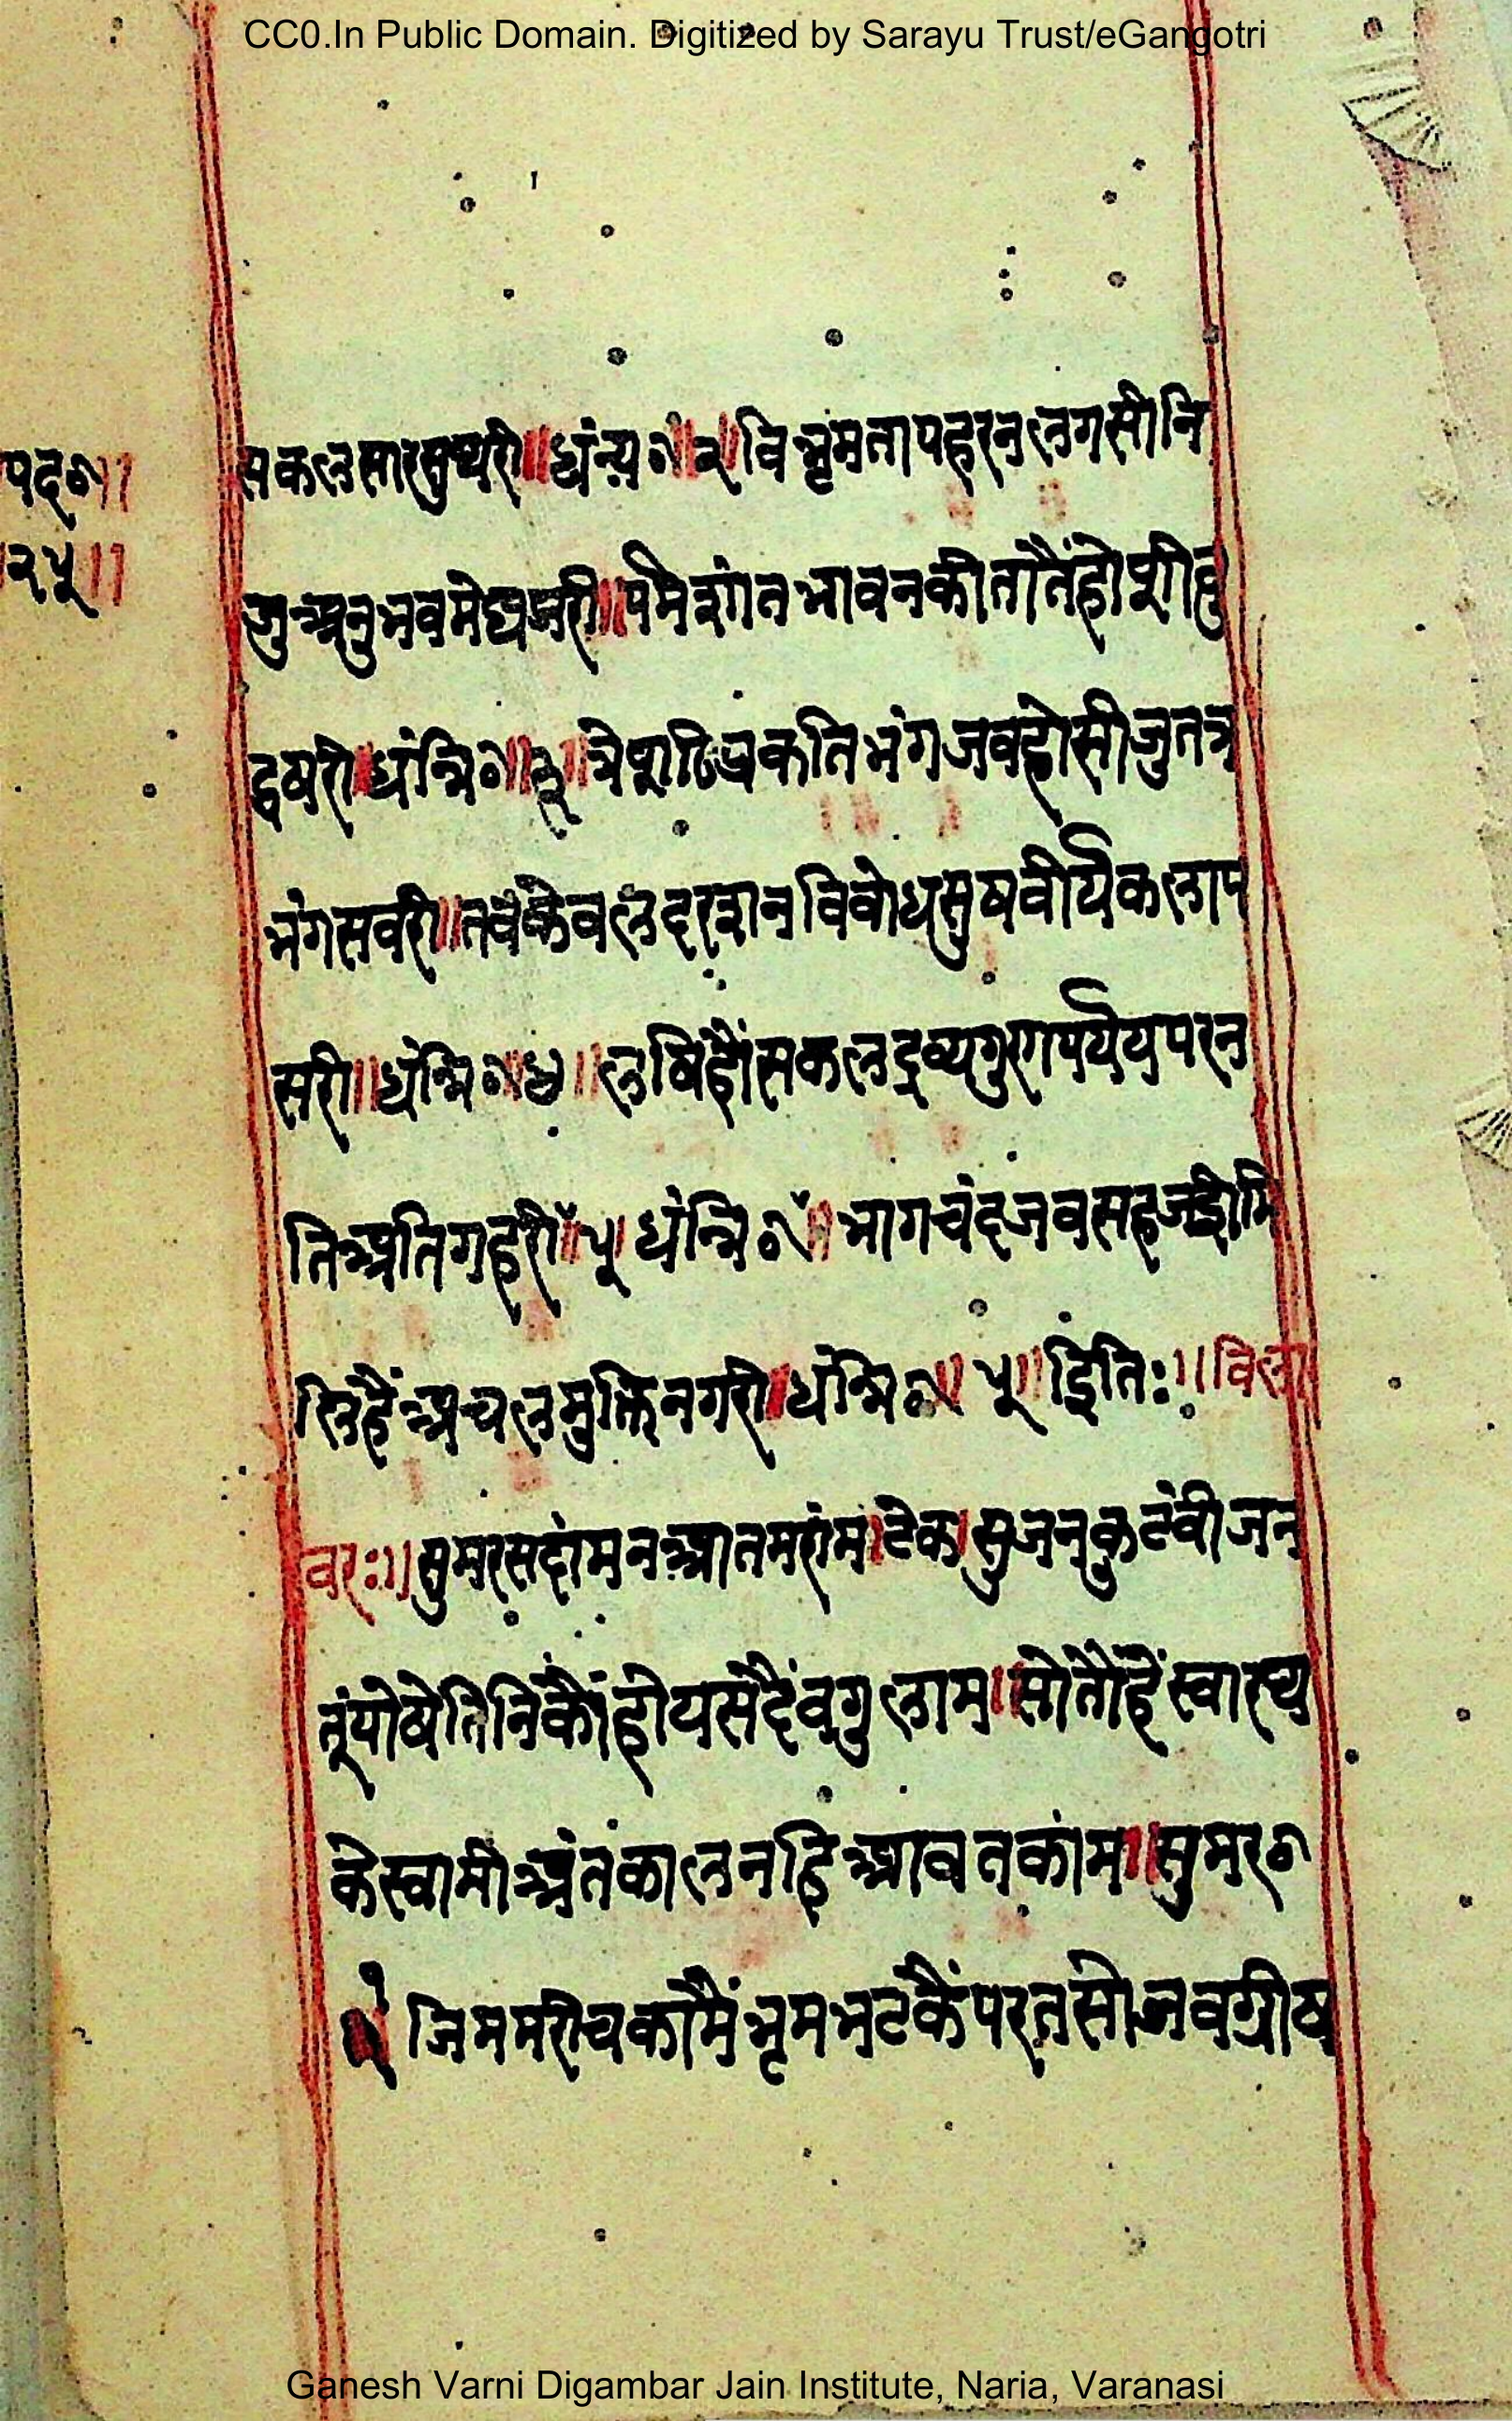 CC0.In Public Domain. Digitized by Sarayu Trust/eGangotri
पद०॥
२५॥
सकलसारसुथरी॥धंन्य०॥२॥विभ्रमतापहरनलगसीनि
जुअनुभवमेघझरी॥पर्मशांतभावनकीतातैंहोशीवृ
द्वषरी॥धंन्नि०॥३॥त्रेशठिप्रकतिभंगजवहोसीजुतत्र
भंगसवरी॥तवकेवलदरशनविवोधसुषवीर्यकलाप
सरी॥धंन्नि०॥४॥लषिहौंसकलद्रव्यगुरगपर्यय परन
तिअतिगहरी॥५॥धंन्नि०॥भागचंदजवसहजहीमि
लिहैंअचलमुक्तिनगरी॥धंन्नि०॥५॥इति:॥विला
वर:॥सुमरसदांमनआतमरांम।टेक।सुजनकुटंवीजन
तूंपोषेतिनिकौंहोयसदैंवगुलाम॥सोतौहेंस्वारथ
केस्वामीअंतकालनहिआवतकांम॥सुमर०
१ जिममरीचकामैंभृमभटकैंपरतसोजवग्रीष
Ganesh Varni Digambar Jain Institute, Naria, Varanasi